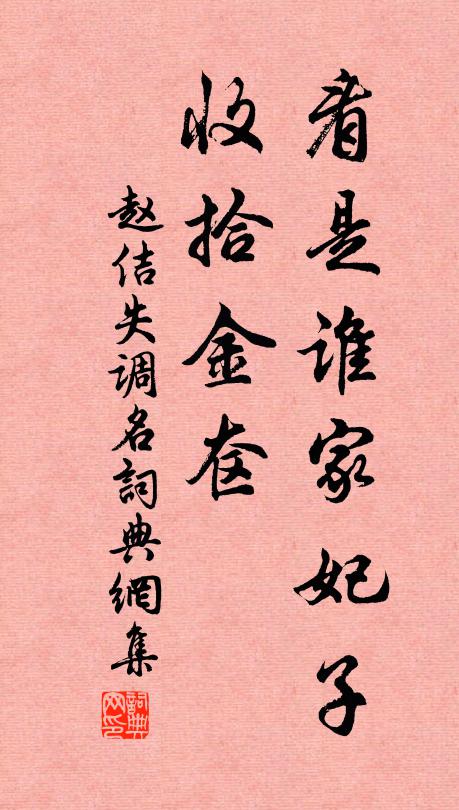 看是谁家妃子
收拾金奁
赵佶失调名詞典網集
詞典网印